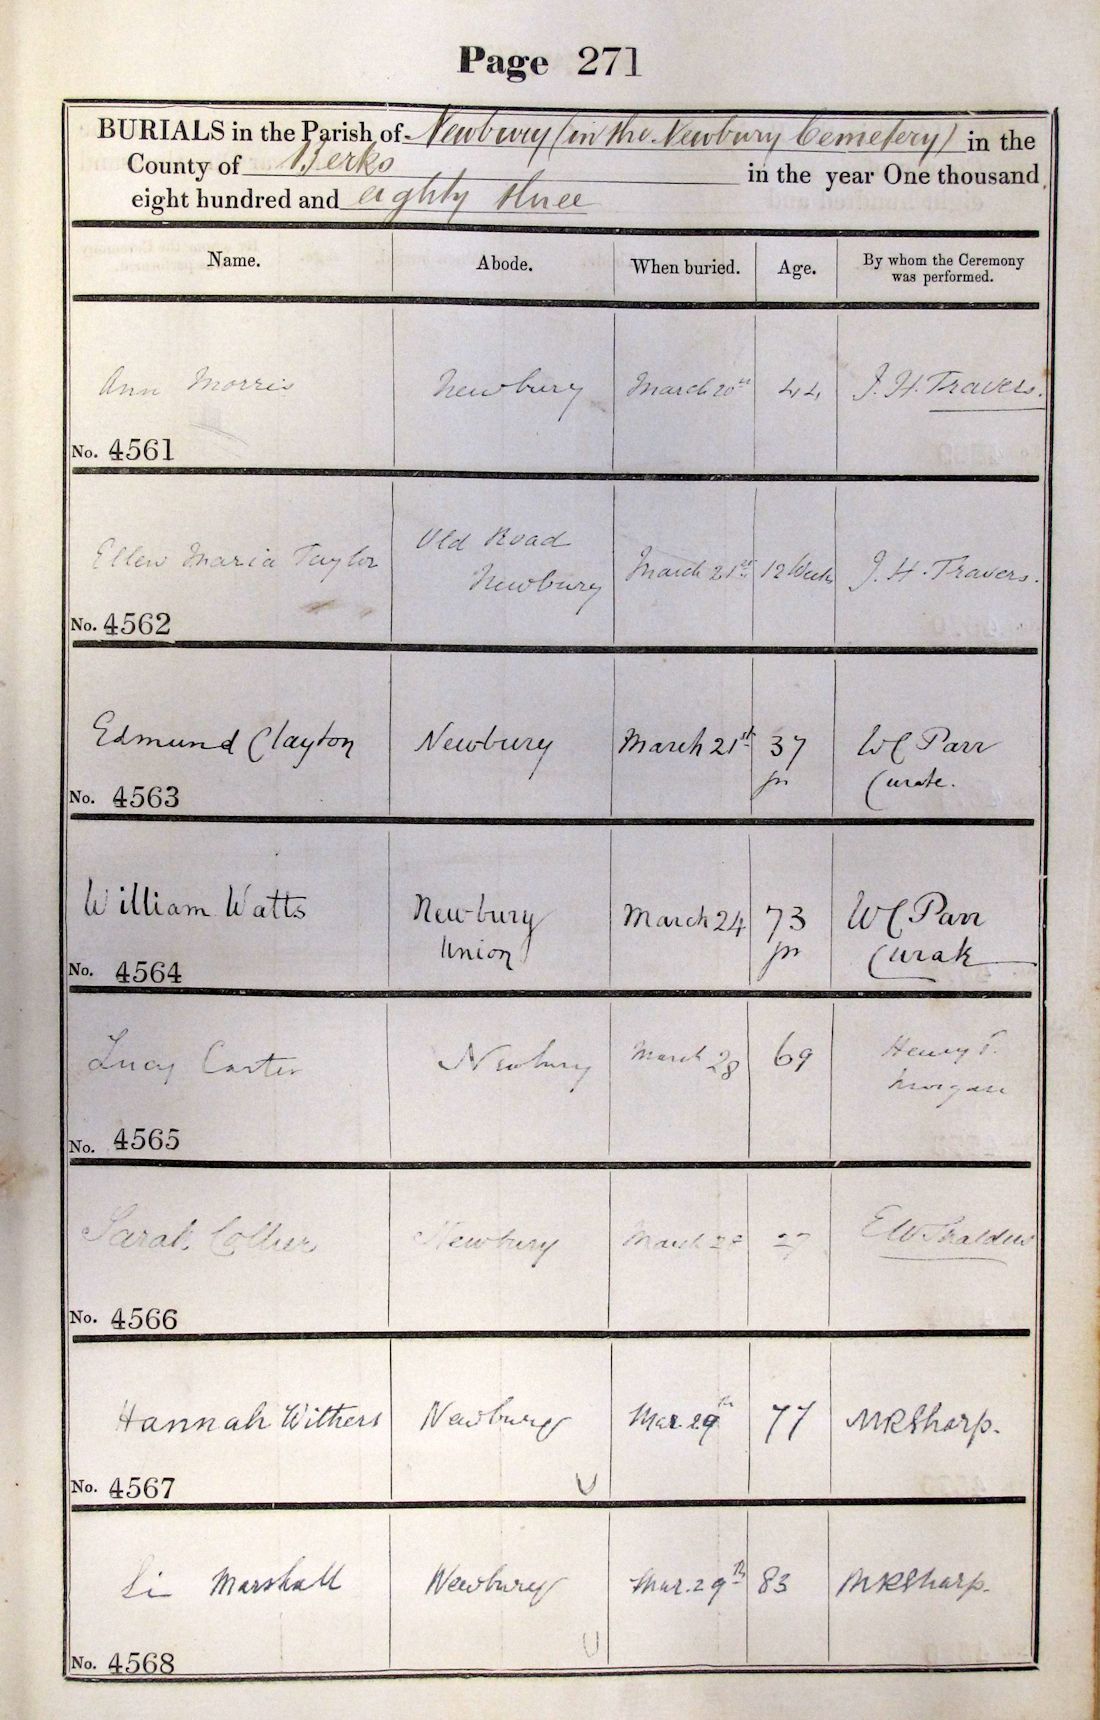 Page 271
BURIALS in the Parish of Newbury (in the Newbury Cemetery) in the
County of Berks in the year One thousand
eight hundred and eighty three
Name. Abode. When buried. Age. By whom the Ceremony
was performed.
Ann Morris Newbury March 20th 44 J. H. Travers.
No. 4561
Ellen Maria Taylor Old Road
Newbury March 21st 12 Weeks J. H. Travers.
No. 4562
Edmund Clayton Newbury March 21st 37 WC Parr
yrs Curate.
No. 4563
William Watts Newbury March 24 73 WC Parr
Union yrs Curate
No. 4564
Lucy Carter Newbury March 28 69 Henry T.
Morgan
No. 4565
Sarah Collier Newbury March 27
No. 4566
Hannah Withers Newbury Mar. 29th 77 MRSharp.
No. 4567
Marshall Newbury Mar. 29th 83 MRSharp.
No. 4568